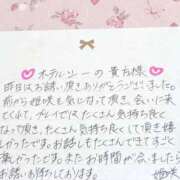 ホテルソーの貴方様
昨日はお誘い頂きありがとうございました。
前から姫咲を気になって頂き、会いに来て
くれて、プレイではたくさん気持ち良く
なって頂き、たくさん気持ち良くして頂き嬉し
かったです。お話しもたくさんできてすごく楽
しかったです。またお時間が会いましたら
お誘いお待ちしております。
姫咲